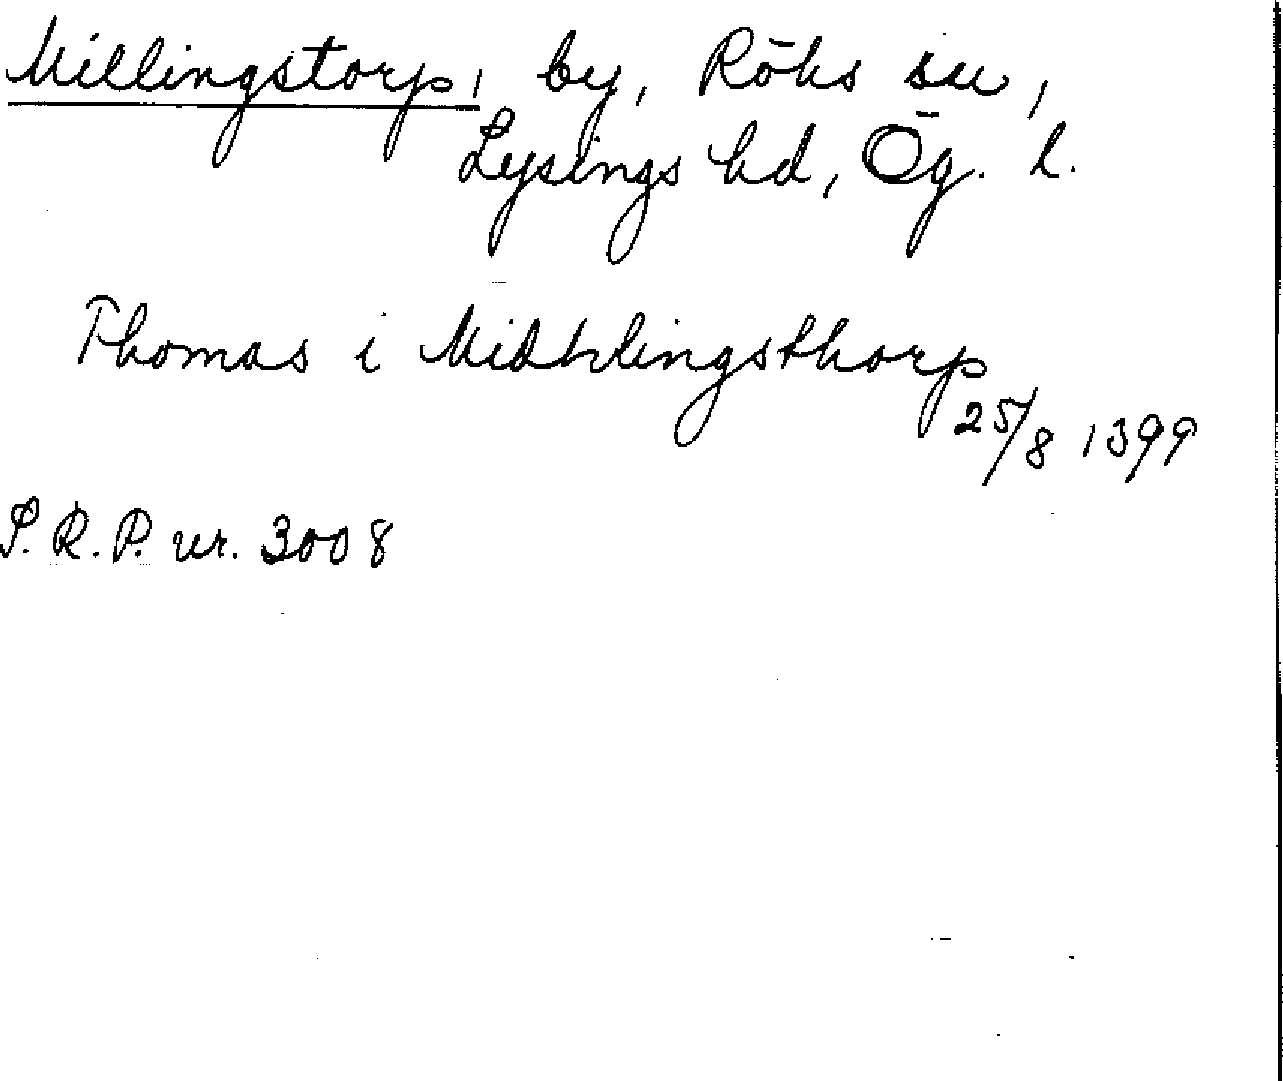 Millingstorp, by, Röks sn,
Lysings hd, Ög. l.
Thomas i Midhlingsthorp
25/8 1399
P. R. P. nr. 3008